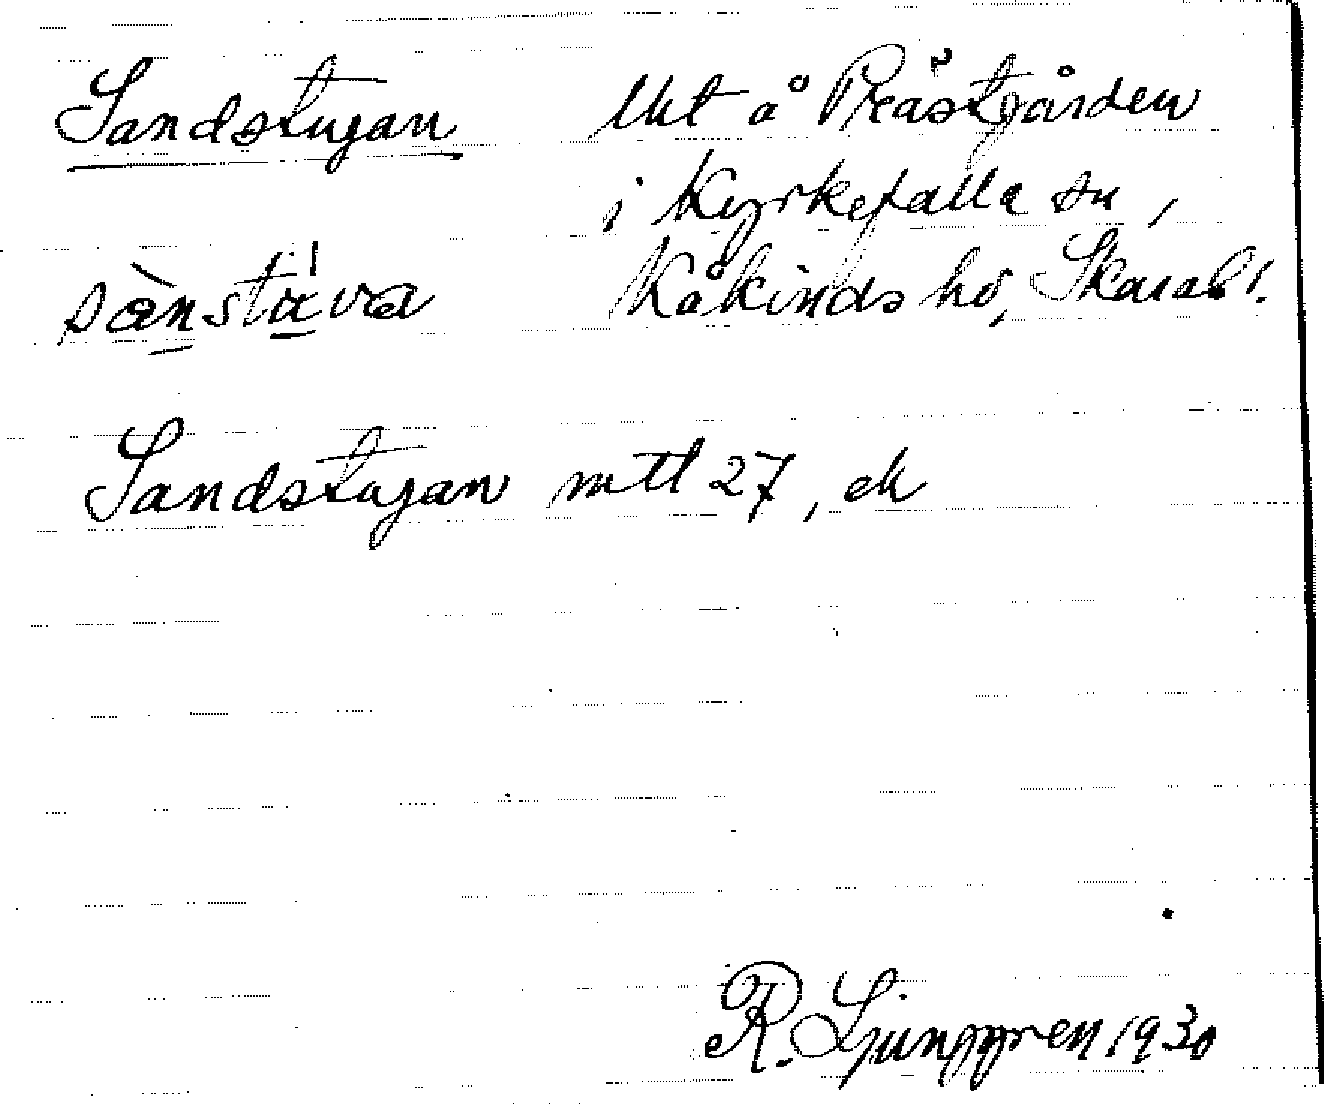 Sandstugan Ukt å Prästgården
i Kyrkefalla sn,
sànstáva Kåkinds hd, Skarab!.
Sandstugan mtl 27, ek
R. Ljunggren 1930